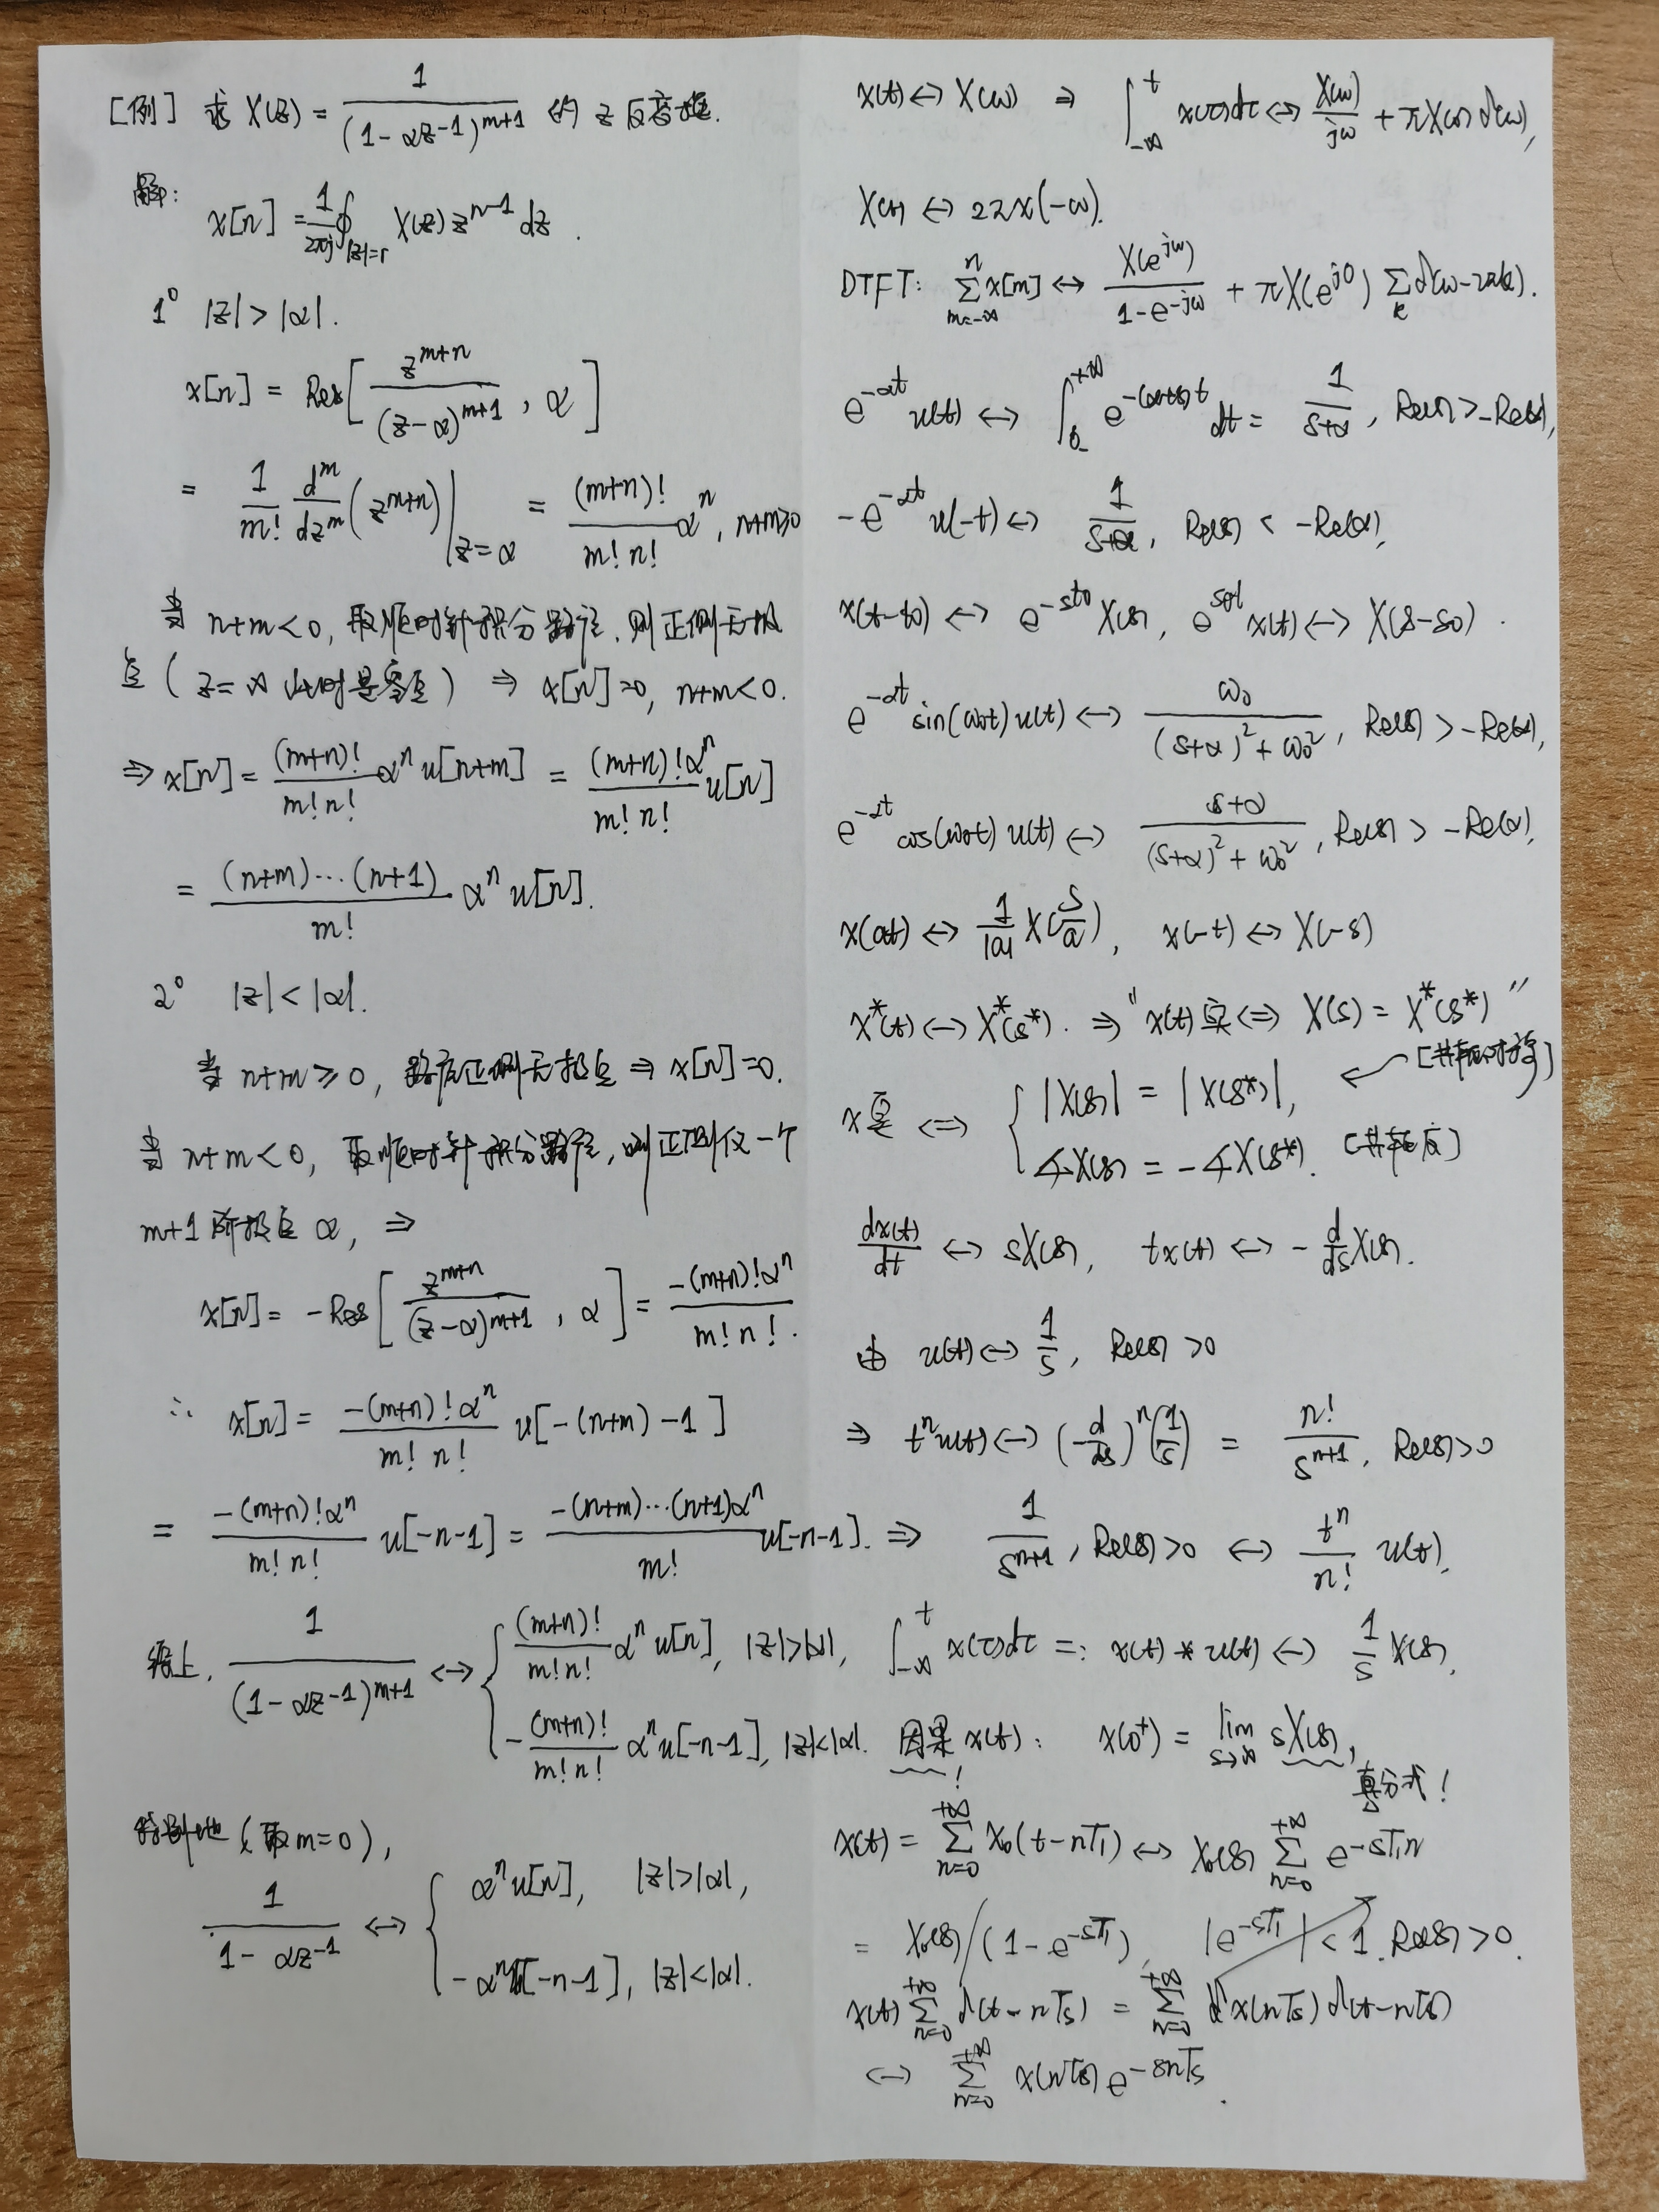 [例] 求 X(z) = 1/(1-αz^{-1})^{m+1} 的 z 反变换.
解:
x[n] = 1/(2πj) ∮_{|z|=r} X(z) z^{n-1} dz.
1° |z| > |α|.
x[n] = Res[ z^{m+n}/(z-α)^{m+1} , α ]
= 1/m! d^m/dz^m (z^{m+n}) |_{z=α} = (m+n)!/(m! n!) α^n , n+m≥0
当 n+m<0, 取顺时针积分路径, 则正侧无极
点 ( z=∞ 此时是零点 ) ⇒ x[n]=0, n+m<0.
⇒ x[n] = (m+n)!/(m! n!) α^n u[n+m] = (m+n)! α^n/(m! n!) u[n]
= (n+m)···(n+1)/m! α^n u[n].
2° |z| < |α|.
当 n+m ≥ 0, 路径正侧无极点 ⇒ x[n]=0.
当 n+m < 0, 取顺时针积分路径, 则正侧仅一个
m+1 阶极点 α, ⇒
x[n] = -Res[ z^{m+n}/(z-α)^{m+1} , α ] = -(m+n)! α^n/(m! n!).
∴ x[n] = -(m+n)! α^n/(m! n!) u[-(n+m)-1]
= -(m+n)! α^n/(m! n!) u[-n-1] = -(n+m)···(n+1)α^n/m! u[-n-1].
综上, 1/(1-αz^{-1})^{m+1} ↔ { (m+n)!/(m! n!) α^n u[n], |z|>|α|,
-(m+n)!/(m! n!) α^n u[-n-1], |z|<|α|.
特别地 (取 m=0),
1/(1-αz^{-1}) ↔ { α^n u[n], |z|>|α|,
-α^n u[-n-1], |z|<|α|.
x(t) ↔ X(ω) ⇒ ∫_{-∞}^{t} x(τ)dτ ↔ X(ω)/jω + πX(0)δ(ω),
X(t) ↔ 2πx(-ω).
DTFT: Σ_{m=-∞}^{n} x[m] ↔ X(e^{jω})/(1-e^{-jω}) + πX(e^{j0}) Σ_k δ(ω-2πk).
e^{-αt} u(t) ↔ ∫_{0_-}^{+∞} e^{-(α+s)t} dt = 1/(s+α), Re(s) > -Re(α),
-e^{-αt} u(-t) ↔ 1/(s+α), Re(s) < -Re(α),
x(t-t0) ↔ e^{-st0} X(s), e^{s0t} x(t) ↔ X(s-s0).
e^{-αt} sin(ω0t) u(t) ↔ ω0/((s+α)^2+ω0^2), Re(s) > -Re(α),
e^{-αt} cos(ω0t) u(t) ↔ (s+α)/((s+α)^2+ω0^2), Re(s) > -Re(α),
x(at) ↔ 1/|a| X(s/a), x(-t) ↔ X(-s)
x*(t) ↔ X*(s*). ⇒ "x(t)实 ⇔ X(s) = X*(s*)"
[共轭对称]
x实 ⇔ { |X(s)| = |X(s*)|,
∡X(s) = -∡X(s*). [共轭反]
dx(t)/dt ↔ sX(s), tx(t) ↔ -d/ds X(s).
由 u(t) ↔ 1/s, Re(s) > 0
⇒ t^n u(t) ↔ (-d/ds)^n (1/s) = n!/s^{n+1}, Re(s)>0
⇒ 1/s^{n+1}, Re(s)>0 ↔ t^n/n! u(t).
∫_{-∞}^{t} x(τ)dτ =: x(t) * u(t) ↔ 1/s X(s).
因果 x(t): x(0^+) = lim_{s→∞} sX(s),
! 真分式!
x(t) = Σ_{n=0}^{+∞} x0(t-nT1) ↔ X0(s) Σ_{n=0}^{+∞} e^{-sT1n}
= X0(s)/(1-e^{-sT1}), |e^{-sT1}| < 1. Re(s) > 0.
x(t) Σ_{n=0}^{+∞} δ(t-nTs) = Σ_{n=0}^{+∞} x(nTs) δ(t-nTs)
↔ Σ_{n=0}^{+∞} x(nTs) e^{-snTs}.